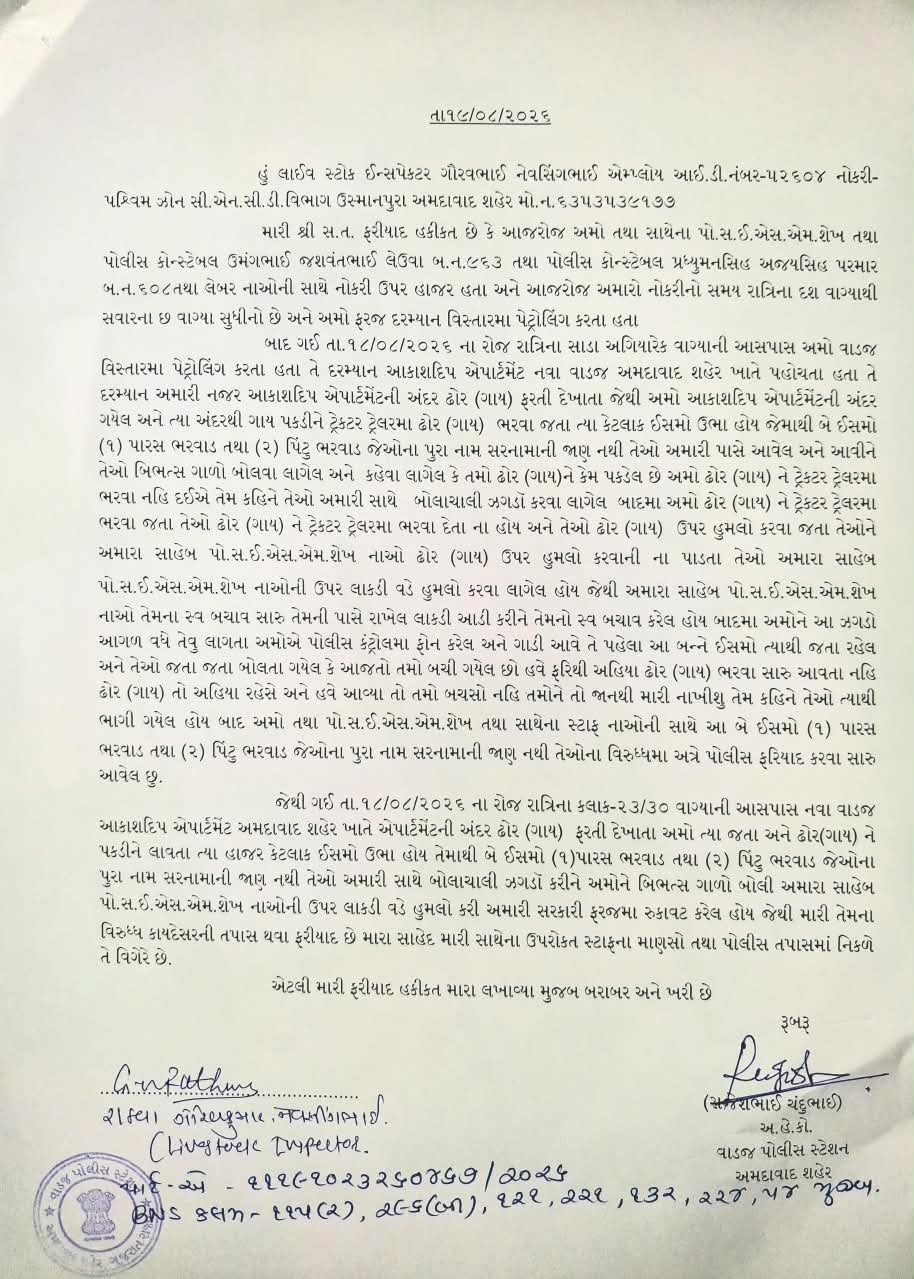 તા૧૯/૦૮/૨૦૨૬
હું લાઈવ સ્ટોક ઈન્સપેકટર ગૌરવભાઈ નેવસિંગભાઈ એમ્પ્લોય આઈ.ડી.નંબર-૫૨૬૦૪ નોકરી-
પશ્ચિમ ઝોન સી.એન.સી.ડી.વિભાગ ઉસ્માનપુરા અમદાવાદ શહેર મો.ન.૬૩૫૩૫૩૯૧૭૭
મારી શ્રી સ.ત. ફરીયાદ હકીકત છે કે આજરોજ અમો તથા સાથેના પો.સ.ઈ.એસ.એમ.શેખ તથા
પોલીસ કોન્સ્ટેબલ ઉમંગભાઈ જશવંતભાઈ લેઉવા બ.ન.૯૬૩ તથા પોલીસ કોન્સ્ટેબલ પ્રધ્યુમનસિહ અજયસિહ પરમાર
બ.ન.૬૦૮તથા લેબર નાઓની સાથે નોકરી ઉપર હાજર હતા અને આજરોજ અમારો નોકરીનો સમય રાત્રિના દશ વાગ્યાથી
સવારના છ વાગ્યા સુધીનો છે અને અમો ફરજ દરમ્યાન વિસ્તારમા પેટ્રોલિંગ કરતા હતા
બાદ ગઈ તા.૧૮/૦૮/૨૦૨૬ ના રોજ રાત્રિના સાડા અગિયારેક વાગ્યાની આસપાસ અમો વાડજ
વિસ્તારમા પેટ્રોલિંગ કરતા હતા તે દરમ્યાન આકાશદિપ એપાર્ટમેંટ નવા વાડજ અમદાવાદ શહેર ખાતે પહોચતા હતા તે
દરમ્યાન અમારી નજર આકાશદિપ એપાર્ટમેંટની અંદર ઢોર (ગાય) ફરતી દેખાતા જેથી અમો આકાશદિપ એપાર્ટમેંટની અંદર
ગયેલ અને ત્યા અંદરથી ગાય પકડીને ટ્રેકટર ટ્રેલરમા ઢોર (ગાય) ભરવા જતા ત્યા કેટલાક ઈસમો ઉભા હોય જેમાથી બે ઈસમો
(૧) પારસ ભરવાડ તથા (૨) પિંટુ ભરવાડ જેઓના પુરા નામ સરનામાની જાણ નથી તેઓ અમારી પાસે આવેલ અને આવીને
તેઓ બિભત્સ ગાળો બોલવા લાગેલ અને કહેવા લાગેલ કે તમો ઢોર (ગાય)ને કેમ પકડેલ છે અમો ઢોર (ગાય) ને ટ્રેકટર ટ્રેલરમા
ભરવા નહિ દઈએ તેમ કહિને તેઓ અમારી સાથે બોલાચાલી ઝગડૉ કરવા લાગેલ બાદમા અમો ઢોર (ગાય) ને ટ્રેકટર ટ્રેલરમા
ભરવા જતા તેઓ ઢોર (ગાય) ને ટ્રેકટર ટ્રેલરમા ભરવા દેતા ના હોય અને તેઓ ઢોર (ગાય) ઉપર હુમલો કરવા જતા તેઓને
અમારા સાહેબ પો.સ.ઈ.એસ.એમ.શેખ નાઓ ઢોર (ગાય) ઉપર હુમલો કરવાની ના પાડતા તેઓ અમારા સાહેબ
પો.સ.ઈ.એસ.એમ.શેખ નાઓની ઉપર લાકડી વડે હુમલો કરવા લાગેલ હોય જેથી અમારા સાહેબ પો.સ.ઈ.એસ.એમ.શેખ
નાઓ તેમના સ્વ બચાવ સારુ તેમની પાસે રાખેલ લાકડી આડી કરીને તેમનો સ્વ બચાવ કરેલ હોય બાદમા અમોને આ ઝગડો
આગળ વધે તેવુ લાગતા અમોએ પોલીસ કંટ્રોલમા ફોન કરેલ અને ગાડી આવે તે પહેલા આ બન્ને ઈસમો ત્યાથી જતા રહેલ
અને તેઓ જતા જતા બોલતા ગયેલ કે આજતો તમો બચી ગયેલ છો હવે ફરિથી અહિયા ઢોર (ગાય) ભરવા સારુ આવતા નહિ
ઢોર (ગાય) તો અહિયા રહેસે અને હવે આવ્યા તો તમો બચસો નહિ તમોને તો જાનથી મારી નાખીશુ તેમ કહિને તેઓ ત્યાથી
ભાગી ગયેલ હોય બાદ અમો તથા પો.સ.ઈ.એસ.એમ.શેખ તથા સાથેના સ્ટાફ નાઓની સાથે આ બે ઈસમો (૧) પારસ
ભરવાડ તથા (૨) પિંટુ ભરવાડ જેઓના પુરા નામ સરનામાની જાણ નથી તેઓના વિરુધ્ધમા અત્રે પોલીસ ફરિયાદ કરવા સારુ
આવેલ છુ.
જેથી ગઈ તા.૧૮/૦૮/૨૦૨૬ ના રોજ રાત્રિના કલાક-૨૩/૩૦ વાગ્યાની આસપાસ નવા વાડજ
આકાશદિપ એપાર્ટમેંટ અમદાવાદ શહેર ખાતે એપાર્ટમેંટની અંદર ઢોર (ગાય) ફરતી દેખાતા અમો ત્યા જતા અને ઢોર(ગાય) ને
પકડીને લાવતા ત્યા હાજર કેટલાક ઈસમો ઉભા હોય તેમાથી બે ઈસમો (૧)પારસ ભરવાડ તથા (૨) પિંટુ ભરવાડ જેઓના
પુરા નામ સરનામાની જાણ નથી તેઓ અમારી સાથે બોલાચાલી ઝગડૉ કરીને અમોને બિભત્સ ગાળો બોલી અમારા સાહેબ
પો.સ.ઈ.એસ.એમ.શેખ નાઓની ઉપર લાકડી વડે હુમલો કરી અમારી સરકારી ફરજમા રુકાવટ કરેલ હોય જેથી મારી તેમના
વિરુધ્ધ કાયદેસરની તપાસ થવા ફરીયાદ છે મારા સાહેદ મારી સાથેના ઉપરોકત સ્ટાફના માણસો તથા પોલીસ તપાસમાં નિકળે
તે વિગેરે છે.
એટલી મારી ફરીયાદ હકીકત મારા લખાવ્યા મુજબ બરાબર અને ખરી છે
રૂબરૂ
(ચંદુભાઈ)
અ.હે.કો.
વાડજ પોલીસ સ્ટેશન
અમદાવાદ શહેર
(Livestock Inspector.
૧૧૧૯૧૦૨૩૨૬૦૪૫૭/૨૦૨૬
BNS કલમ-૧૧૫(૨), ૨૯૬(બી), ૧૨૧, ૨૨૧, ૧૩૨, ૨૨૪, ૫૪ મુજબ.
વાડજ પોલીસ સ્ટેશન